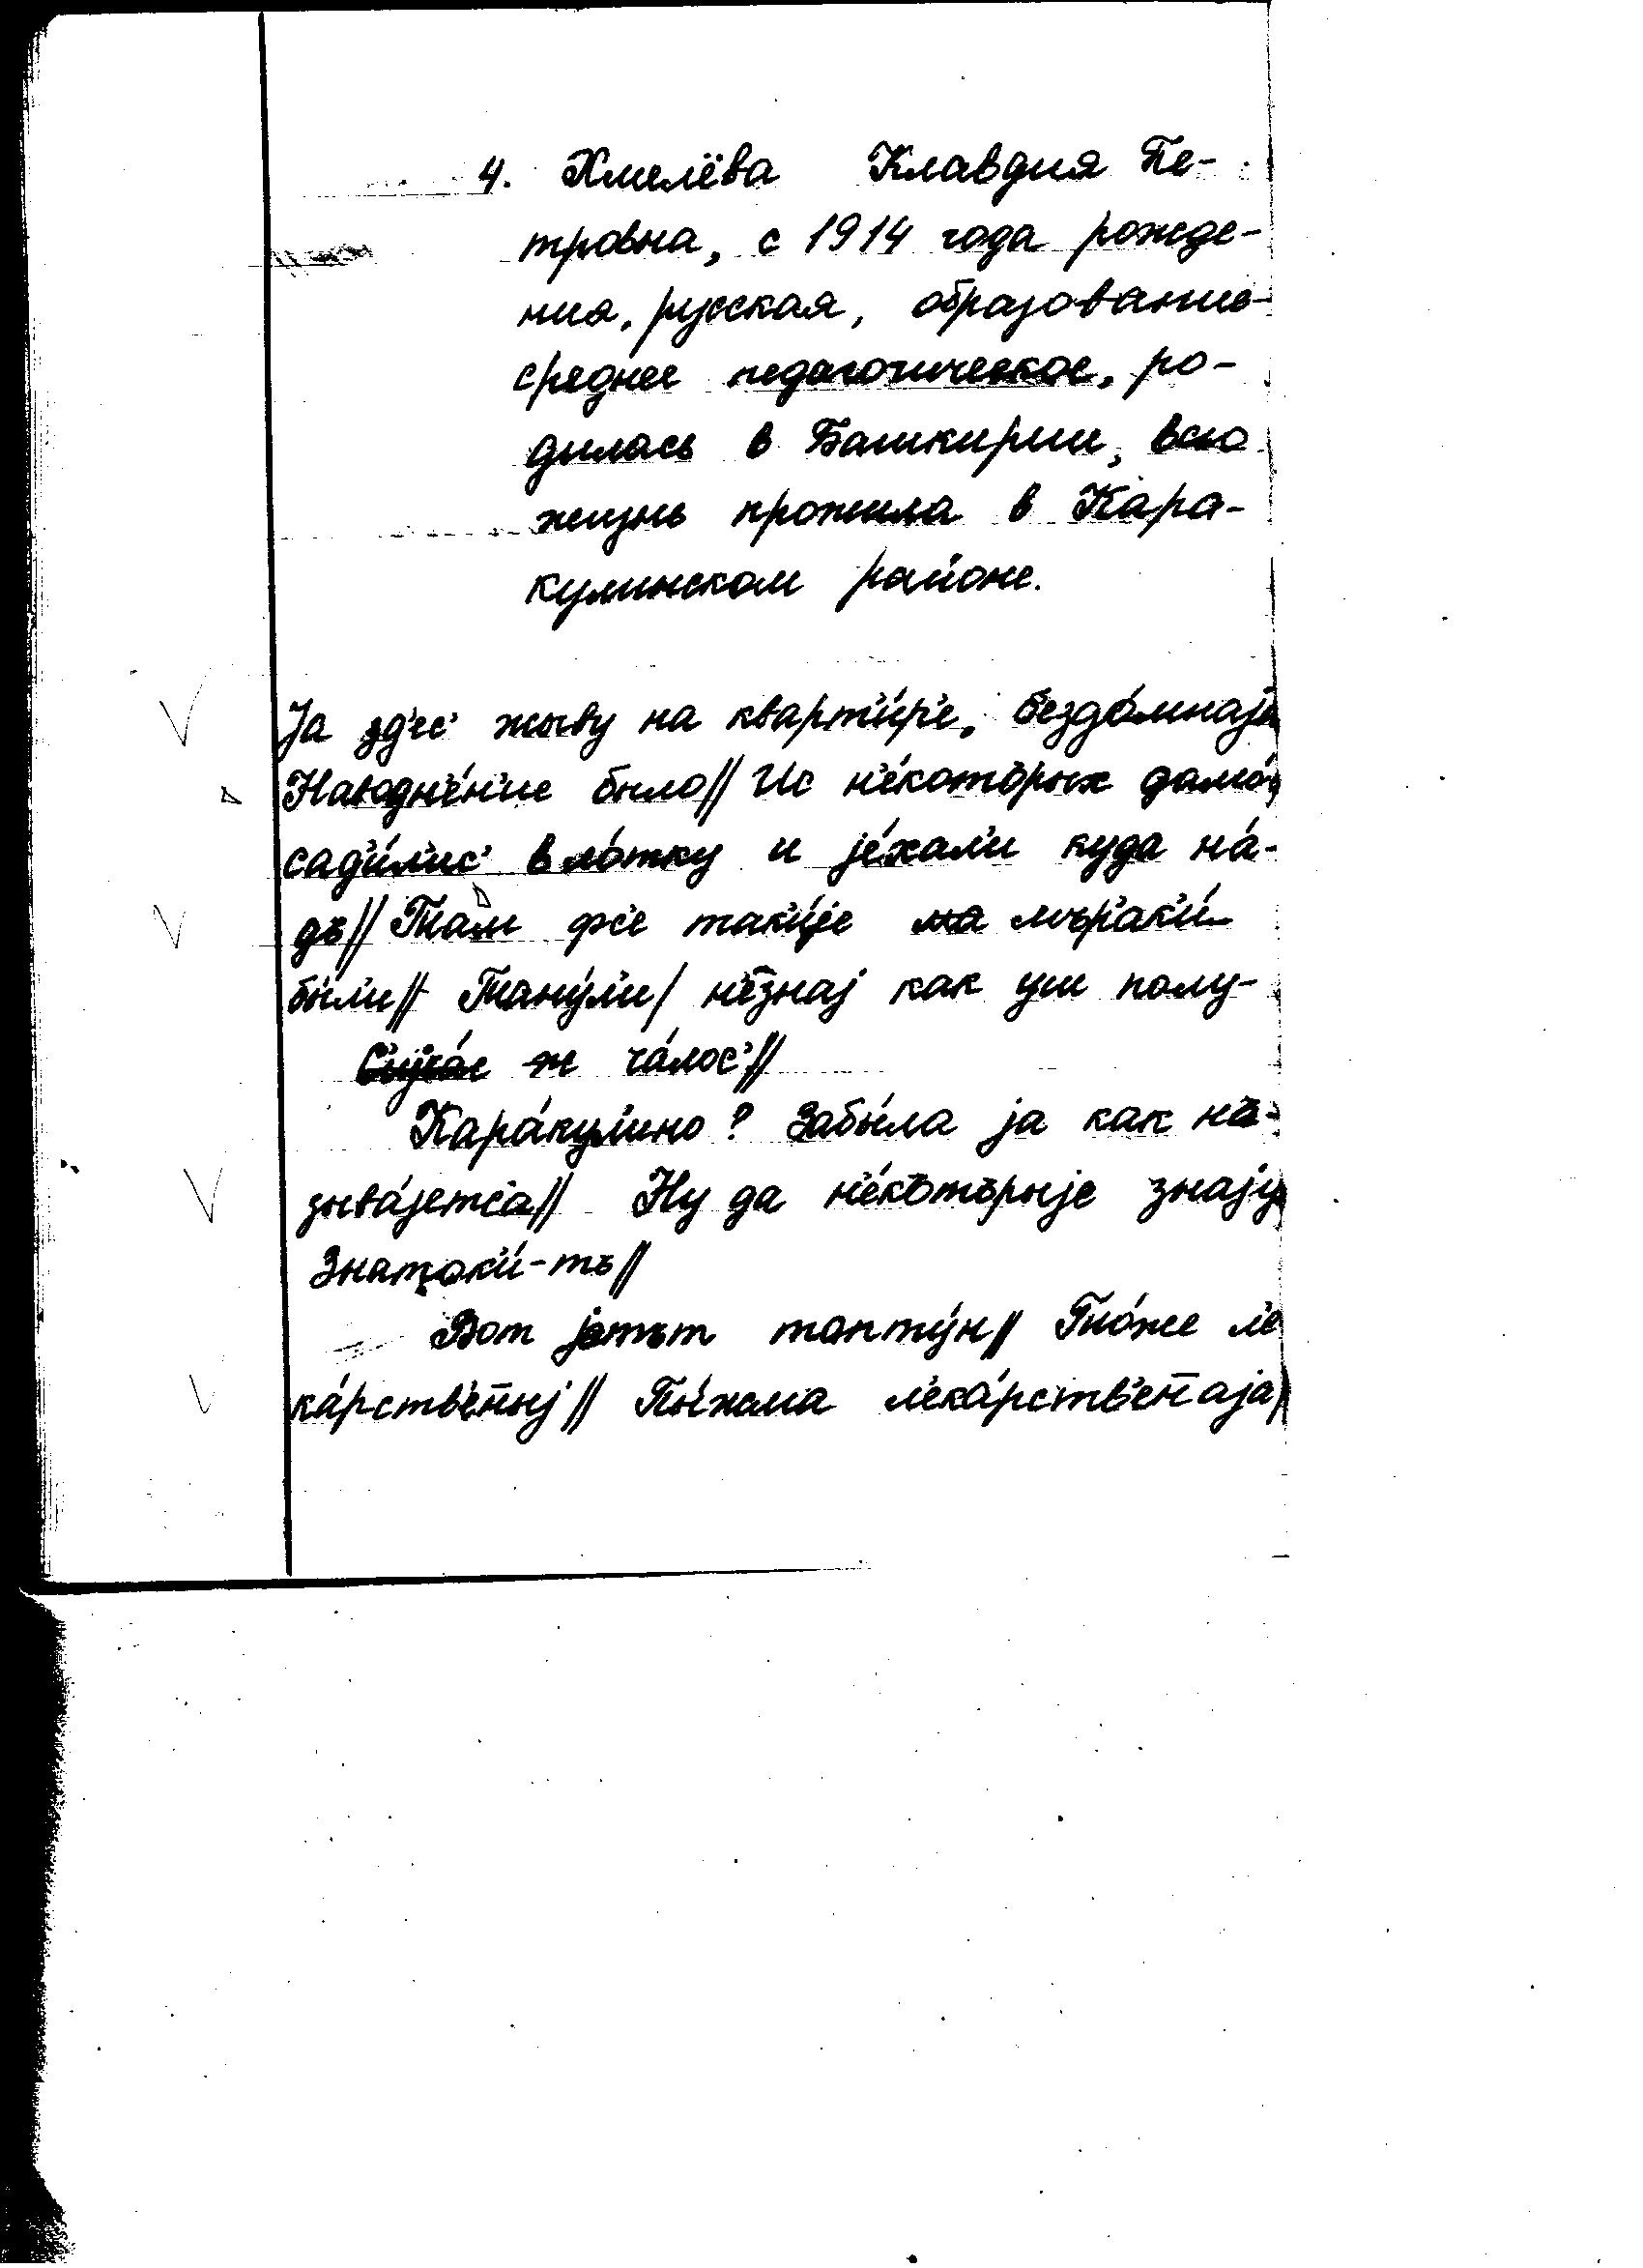 4. Хмелёва Клавдия Пе-
тровна, с 1914 года рожде-
ния, русская, образование-
среднее педагогическое, ро-
дилась в Башкирии, всю
жизнь прожила в Кара-
кулинском районе.
Jа зд'ес' жыву на кварт'и́р'е, бездо́мнаjа
Наводн'е́н'ие было// Ис н'е́которых дамо́
сад'и́лис' в ло́тку и jе́хал'и куда на́-
дъ// Там фс'е так'и́jе мър'ак'и́
был'и// Т'ану́л'и/ н'е знаj как уш полу-
ча́лос'//
Кара́кул'ино? Забы́ла jа как на-
зыва́jетса// Ну да н'е́кътърыjе знаjу
Знаток'и́-тъ//
Вот jетът топту́н// То́же л'е
ка́рств'ен̄ыj// Пы́жма л'ека́рств'ен̄аjа/